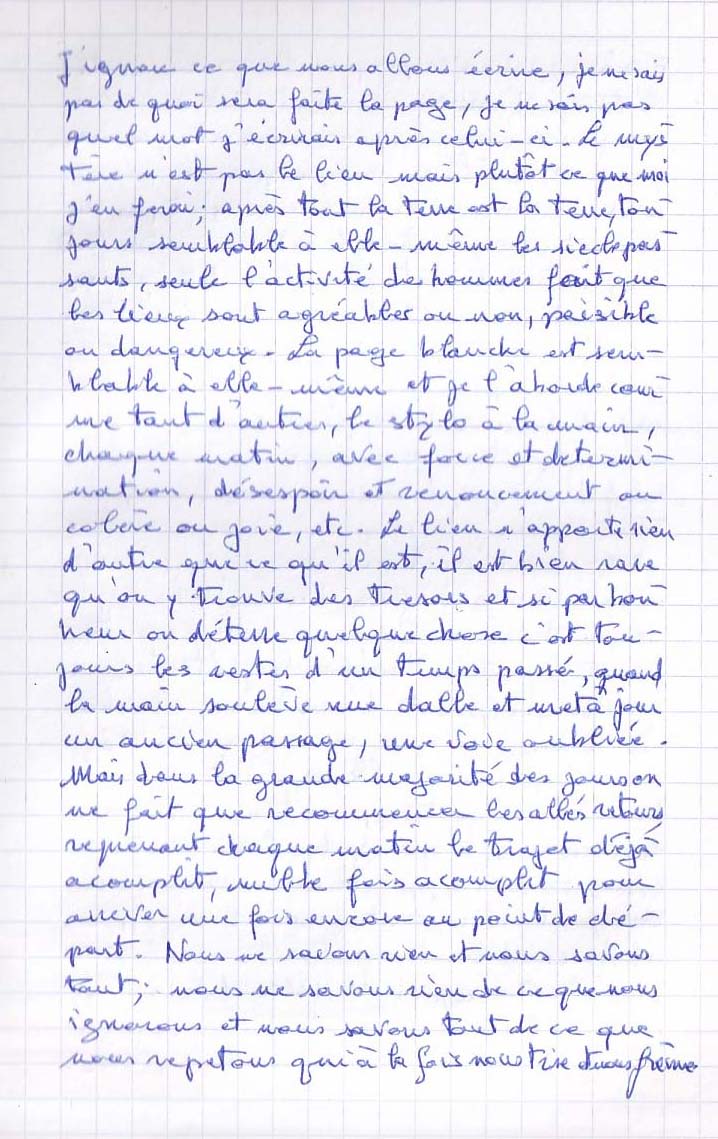 J'ignore ce que nous allons écrire, je ne sais
pas de quoi sera faite la page, je ne sais pas
quel mot j'écrirais après celui-ci. Le mys
tère n'est pas le lieu mais plutôt ce que moi
j'en ferai; après tout la terre est la terre, tou
jours semblable à elle-même les siècles pas-
sants, seule l'activité de hommes fait que
les lieux sont agréables ou non, paisible
ou dangereux. La page blanche est sem-
blable à elle-même et je l'aborde com
me tant d'autres, le stylo à la main,
chaque matin, avec force et determi-
nation, désespoir et renoncement ou
colère ou joie, etc. Le lieu n'apporte rien
d'autre que ce qu'il est, il est bien rare
qu'on y trouve des tresors et si par bon
heur on déterre quelque chose c'est tou-
jours les restes d'un temps passé, quand
la main soulève une dalle et met à jour
un ancien passage, une voie oubliée.
Mais dans la grande majorité des jours on
ne fait que recommencer les allés retours
reprenant chaque matin le trajet déjà
acomplit, mille fois acomplit pour
arriver une fois encore au point de dé-
part. Nous ne savons rien et nous savons
tout; nous ne savons rien de ce que nous
ignorons et nous savons tout de ce que
nous repetons qui à la fois nous tire et nous freine